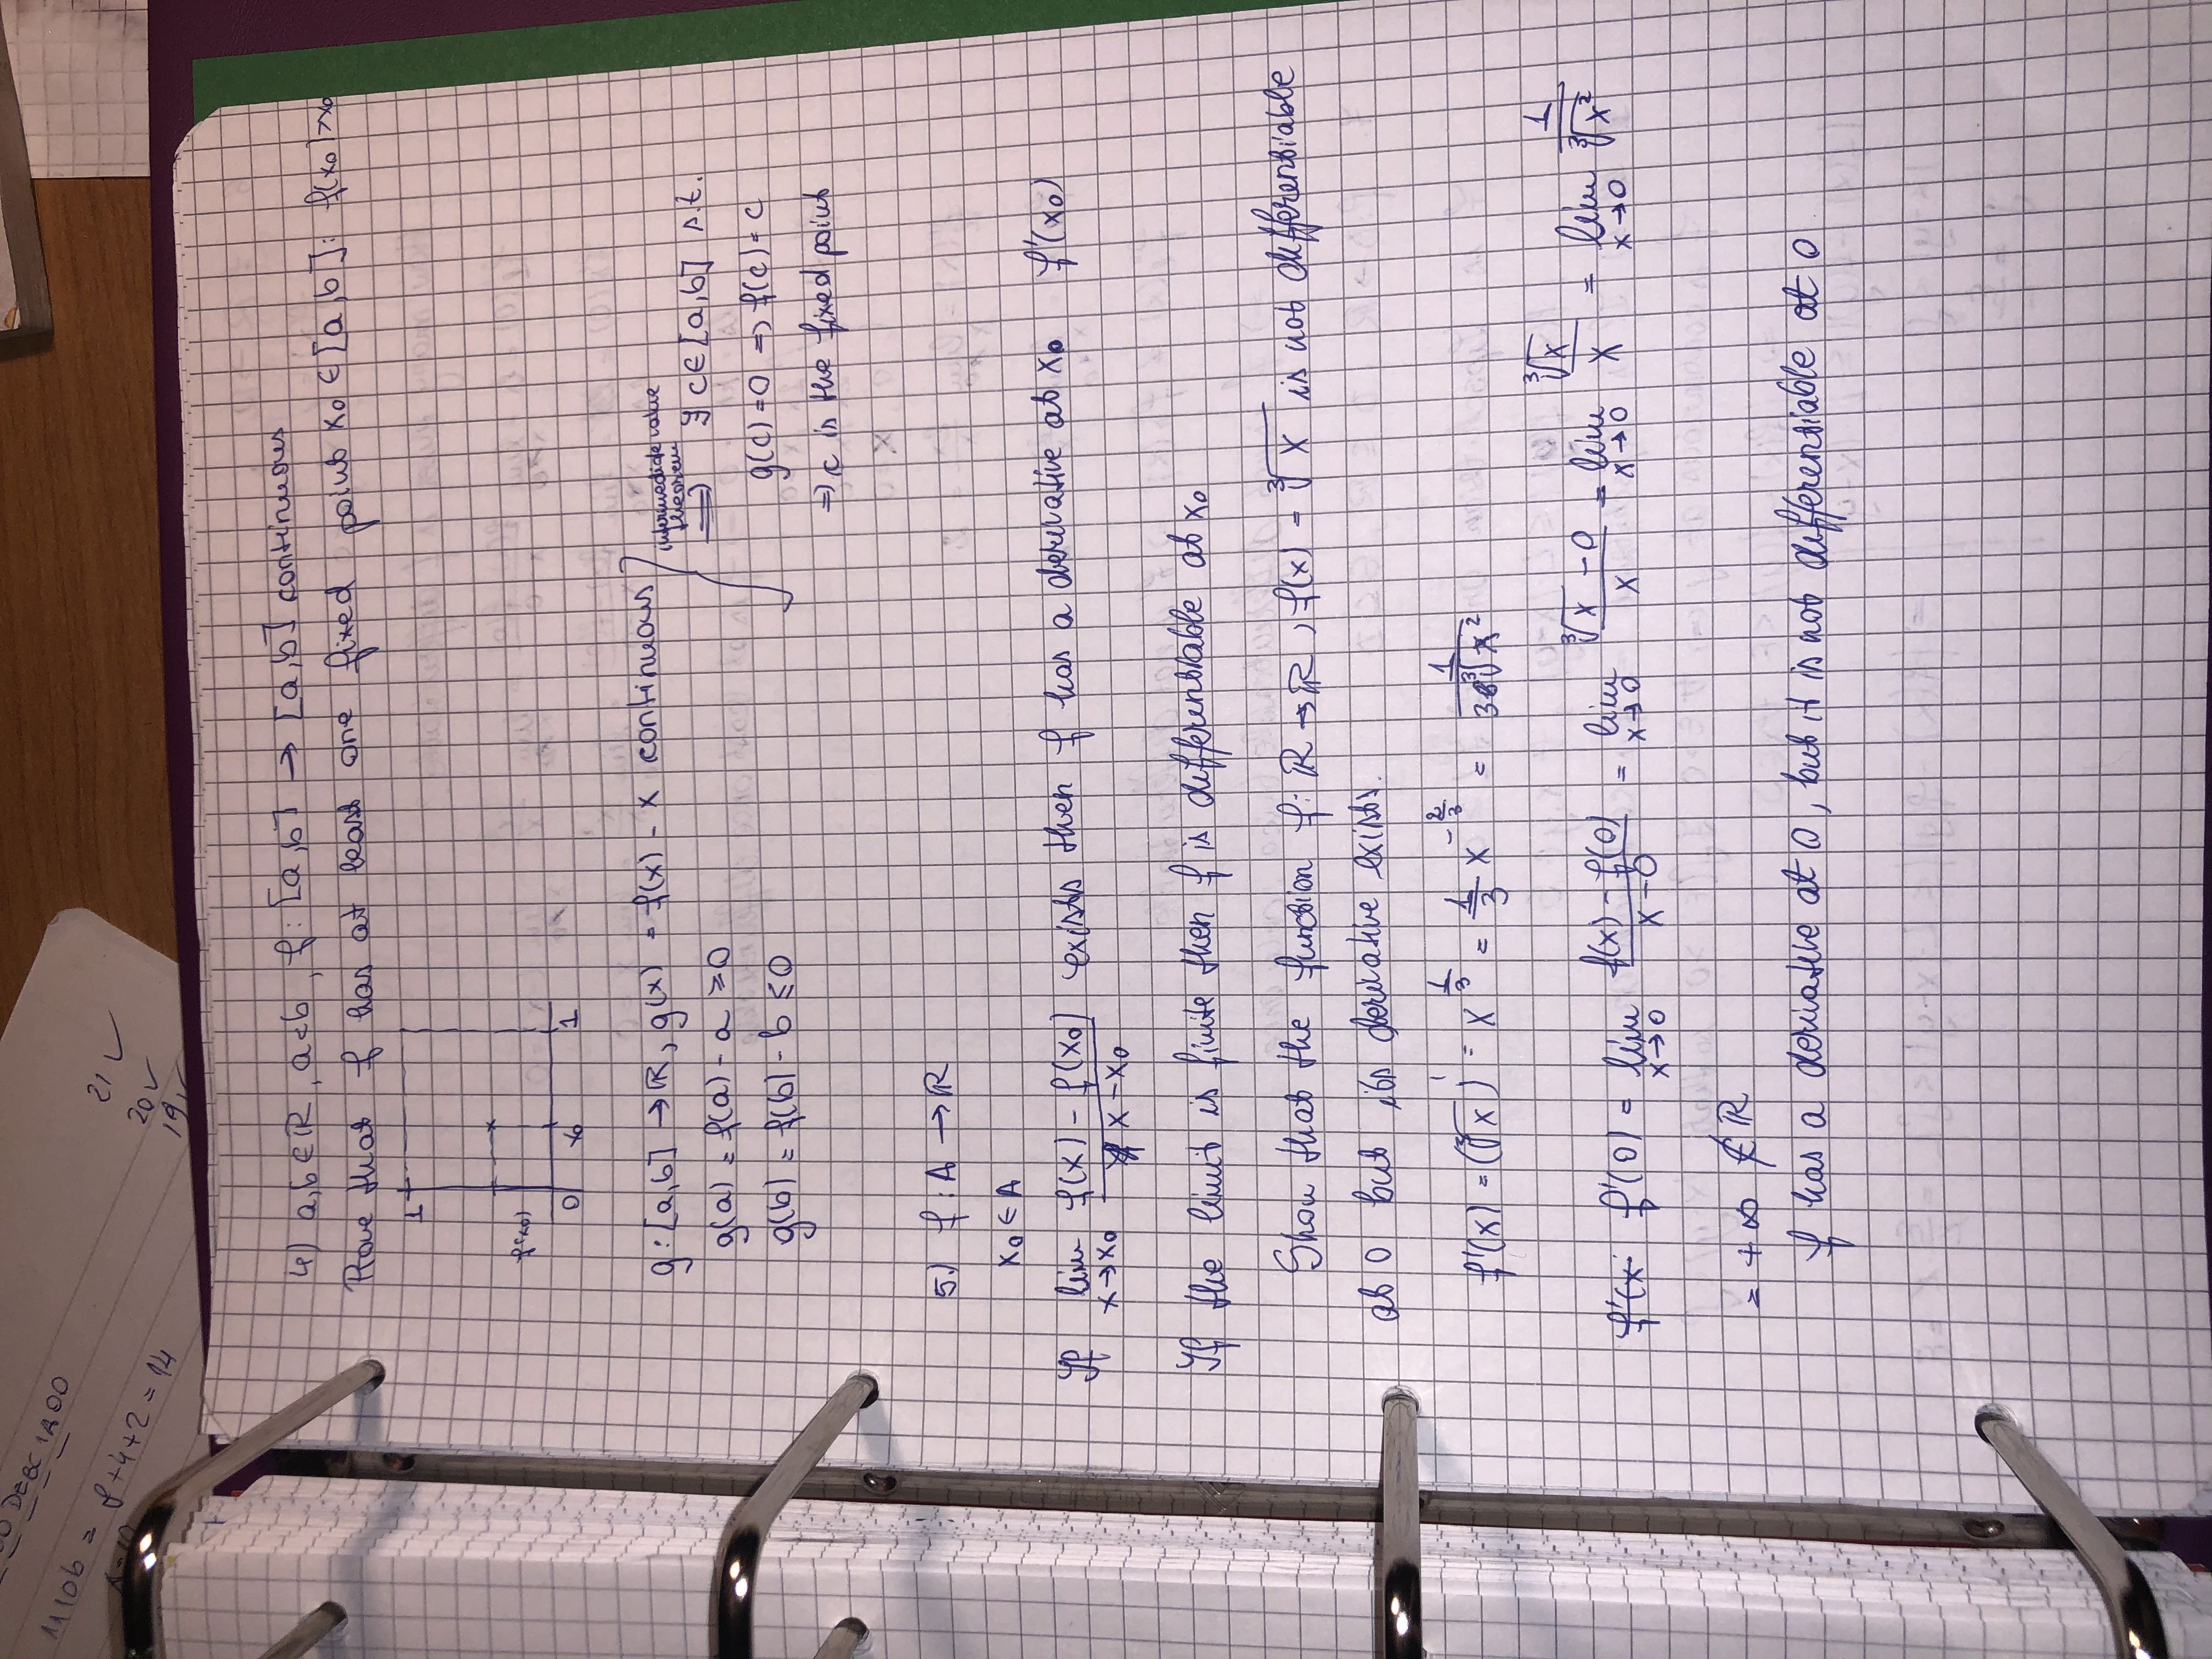 00 DEBC 1A00
1110b = 8+4+2=14
21 ✓
20 ✓
19 ✓
4) a,b∈ℝ, a<b, f: [a,b] → [a,b] continuous
Prove that f has at least one fixed point x₀ ∈ [a,b]: f(x₀)=x₀
1
f(x₀)
0 x₀ 1
g: [a,b] → ℝ, g(x) = f(x) - x continuous
g(a) = f(a) - a ≥ 0
g(b) = f(b) - b ≤ 0
intermediate value
theorem
⟹ ∃ c∈[a,b] s.t.
g(c)=0 ⇒ f(c)=c
⇒ c is the fixed point
5.) f: A → ℝ
x₀ ∈ A
If lim x→x₀ (f(x) - f(x₀))/(x - x₀) exists then f has a derivative at x₀ f'(x₀)
If the limit is finite then f is differentiable at x₀
Show that the function f: ℝ → ℝ, f(x) = ∛x is not differentiable
at 0 but its derivative exists.
f'(x) = (∛x)' = x^(1/3) = 1/3 x^(-2/3) = 1/(3∛x²)
f'(x f'(0) = lim x→0 (f(x) - f(0))/(x - 0) = lim x→0 (∛x - 0)/x = lim x→0 ∛x/x = lim x→0 1/∛x²
= +∞ ∉ ℝ
f has a derivative at 0, but it is not differentiable at 0